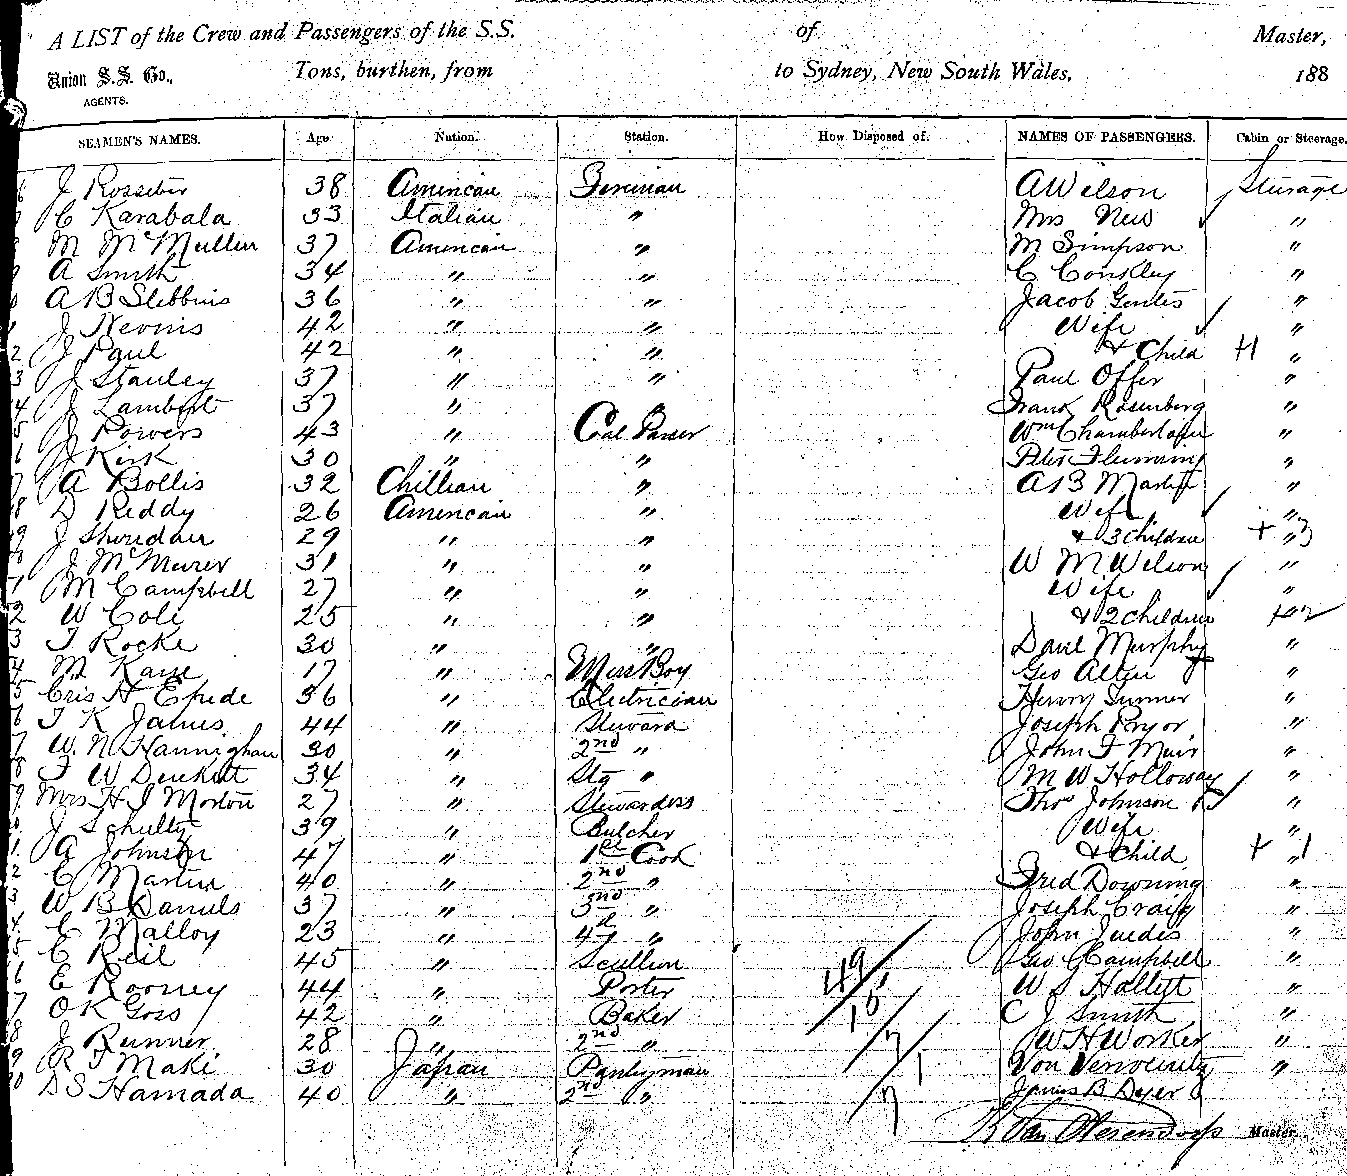 A LIST of the Crew and Passengers of the S.S. of Master,
Union S.S. Co., Tons, burthen, from to Sydney, New South Wales, 188
AGENTS.
SEAMEN'S NAMES. Age Nation. Station. How Disposed of. NAMES OF PASSENGERS. Cabin or Steerage.
J Rossiter 38 American Fireman A Wilson Steerage
C Karabala 33 Italian " Mrs New "
M McMullin 37 American " M Simpson "
A Smith 34 " " C Conkley "
A B Stebbins 36 " " Jacob "
J Nevins 42 " " Wife "
2 J Paul 42 " " & Child +1 "
3 J Stanley 37 " " Paul Offer "
4 J Lambert 37 " " Frank Rosenberg "
5 J Powers 43 " Coal Passer Wm Chamberlain "
6 J Kirk 30 " " Peter Flemming "
7 A Bollis 32 Chillian " A B "
8 D Reddy 26 American " Wife "
9 J Sheridan 29 " " & 3 Children + 3 "
J 31 " " W M Wilson "
1 M Campbell 27 " " Wife "
2 W Cole 25 " " & 2 Children +2
3 T Rocke 30 " " Murphy "
4 M Kane 17 " Mess Boy Geo Allen "
5 Cris H 36 " Electrician Henry "
6 T K James 44 " Steward Joseph Pryor "
7 W. N. Hannighan 30 " 2nd " John F Muir "
8 F W 34 " Stg " M W Holloway "
9 Mrs H J Morton 27 " Stewardess Thos Johnson "
J Schultz 39 " Butcher Wife "
1 A Johnson 47 " 1st Cook & Child + 1 "
2 C Martin 40 " 2nd " Fred Downing "
3 W B Daniels 37 " 3nd " Joseph Craig "
4 C Malloy 23 " 4th " John "
5 C Reil 45 " Scullion Geo G Campbell "
6 E Rooney 44 " Porter 49 W S Hallett "
7 O K Goss 42 " Baker C J Smith "
8 J Runner 28 " 2nd " W H Worker "
9 R T Maki 30 Japan Pantryman Von "
D S Hamada 40 " 2nd " James B Dyer
Master.